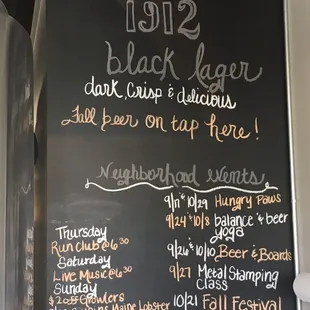 1912
black lager
dark, Crisp & delicious
Fall beer on tap here!
Neighborhood events
Thursday
Run Club @ 6:30
Saturday
Live Music @ 6:30
Sunday
$2 off Growlers
Maine Lobster
9/11 & 10/29 Hungry Paws
9/24 & 10/8 balance & beer
yoga
9/26 & 10/10 Beer & Boards
9/27 Metal Stamping
Class
10/21 Fall Festival